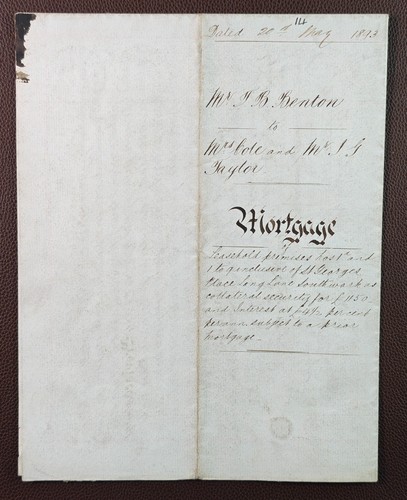 114
Dated 20th May 1893
Mr. T B Benton
to
Mrs Cole and Mr. J G
Taylor
Mortgage
of
Leasehold premises and
1 to 9 inclusive of St Georges
Place Long Lane Southwark as
collateral security for £1150
and Interest at per cent
per ann. subject to a prior
mortgage